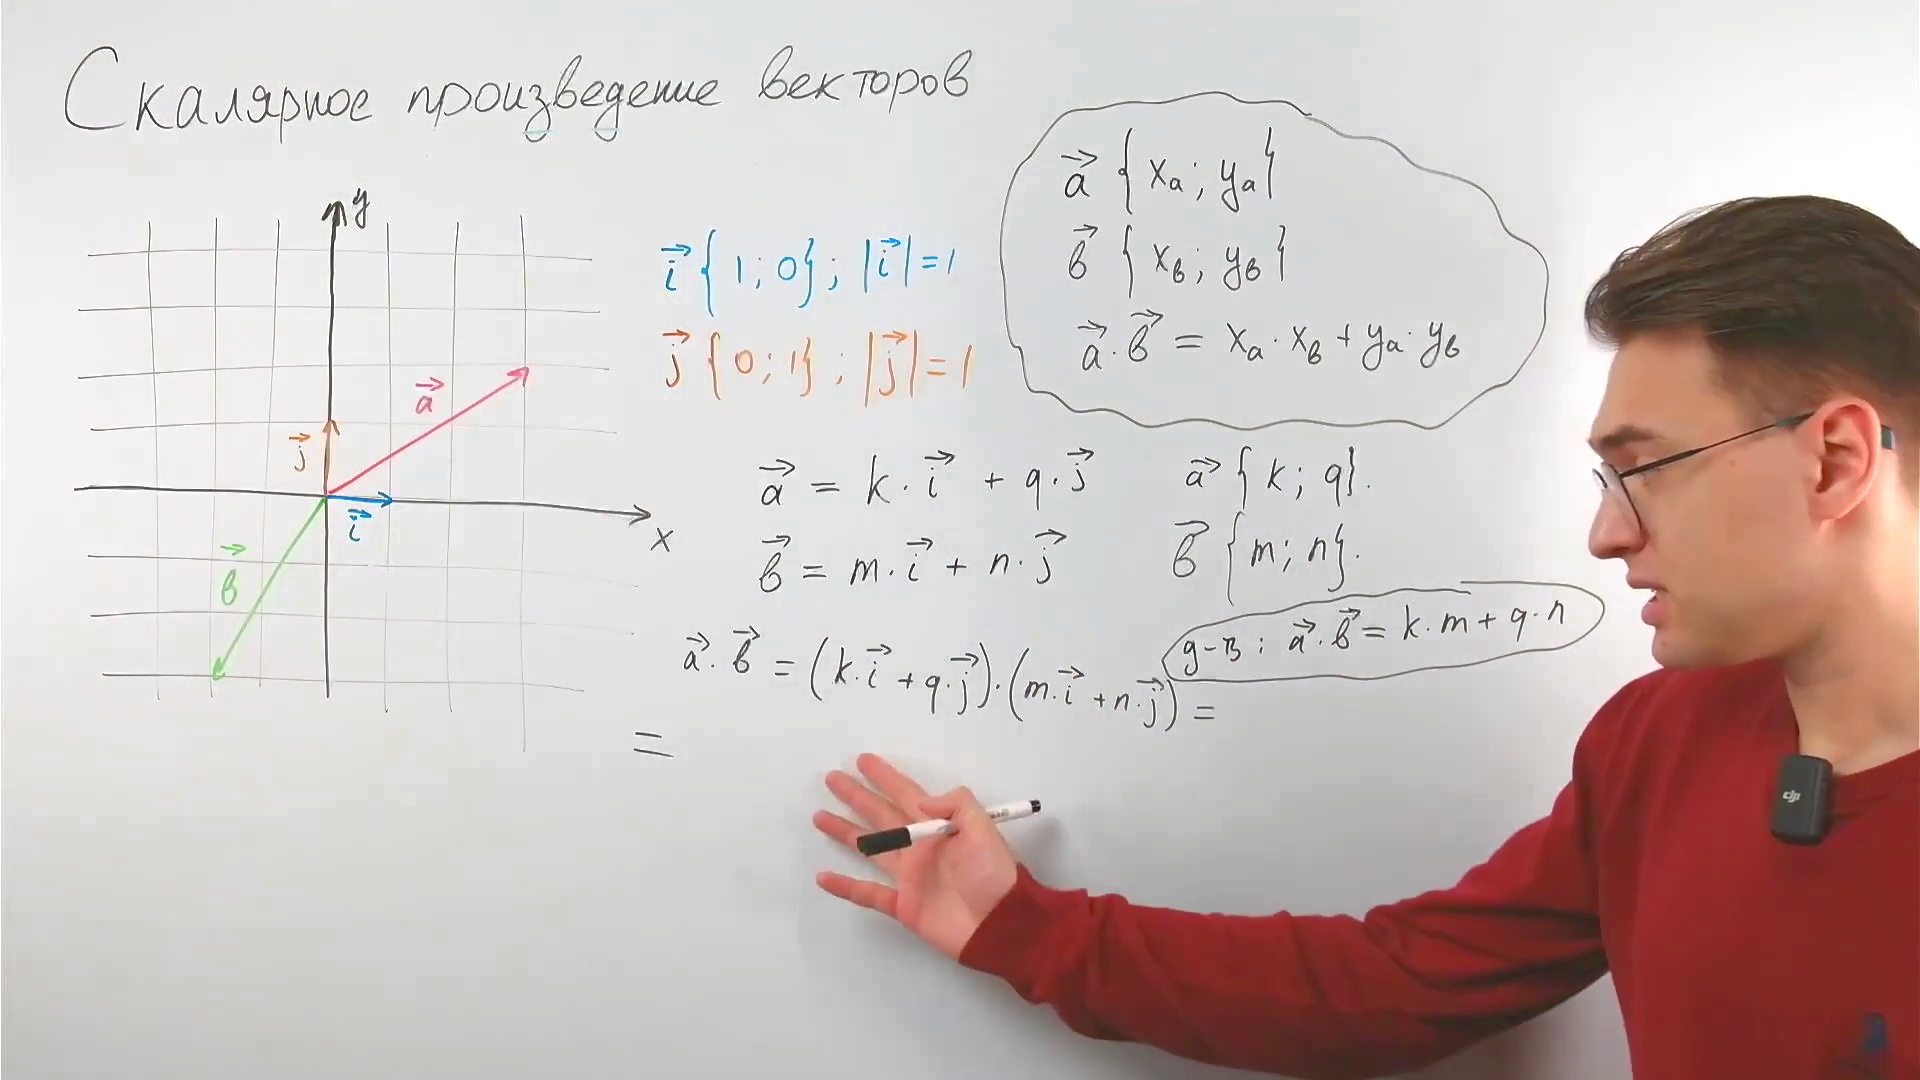 Скалярное произведение векторов
y
a⃗
j⃗
i⃗
x
в⃗
i⃗ {1; 0}; |i⃗| = 1
j⃗ {0; 1}; |j⃗| = 1
a⃗ {xₐ; yₐ}
в⃗ {x_в; y_в}
a⃗ · в⃗ = xₐ · x_в + yₐ · y_в
a⃗ = k · i⃗ + q · j⃗
a⃗ {k; q}.
в⃗ = m · i⃗ + n · j⃗
в⃗ {m; n}.
g-з: a⃗ · в⃗ = k · m + q · n
a⃗ · в⃗ = (k · i⃗ + q · j⃗) · (m · i⃗ + n · j⃗) =
=
dji